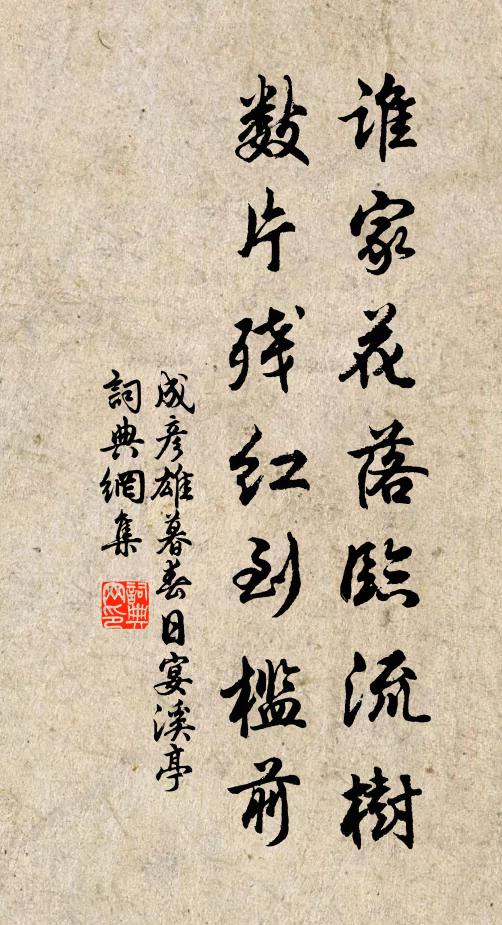 谁家花落臨流樹
数片残红到檻前
成彦雄暮春日宴溪亭
詞典網集
詞典网印